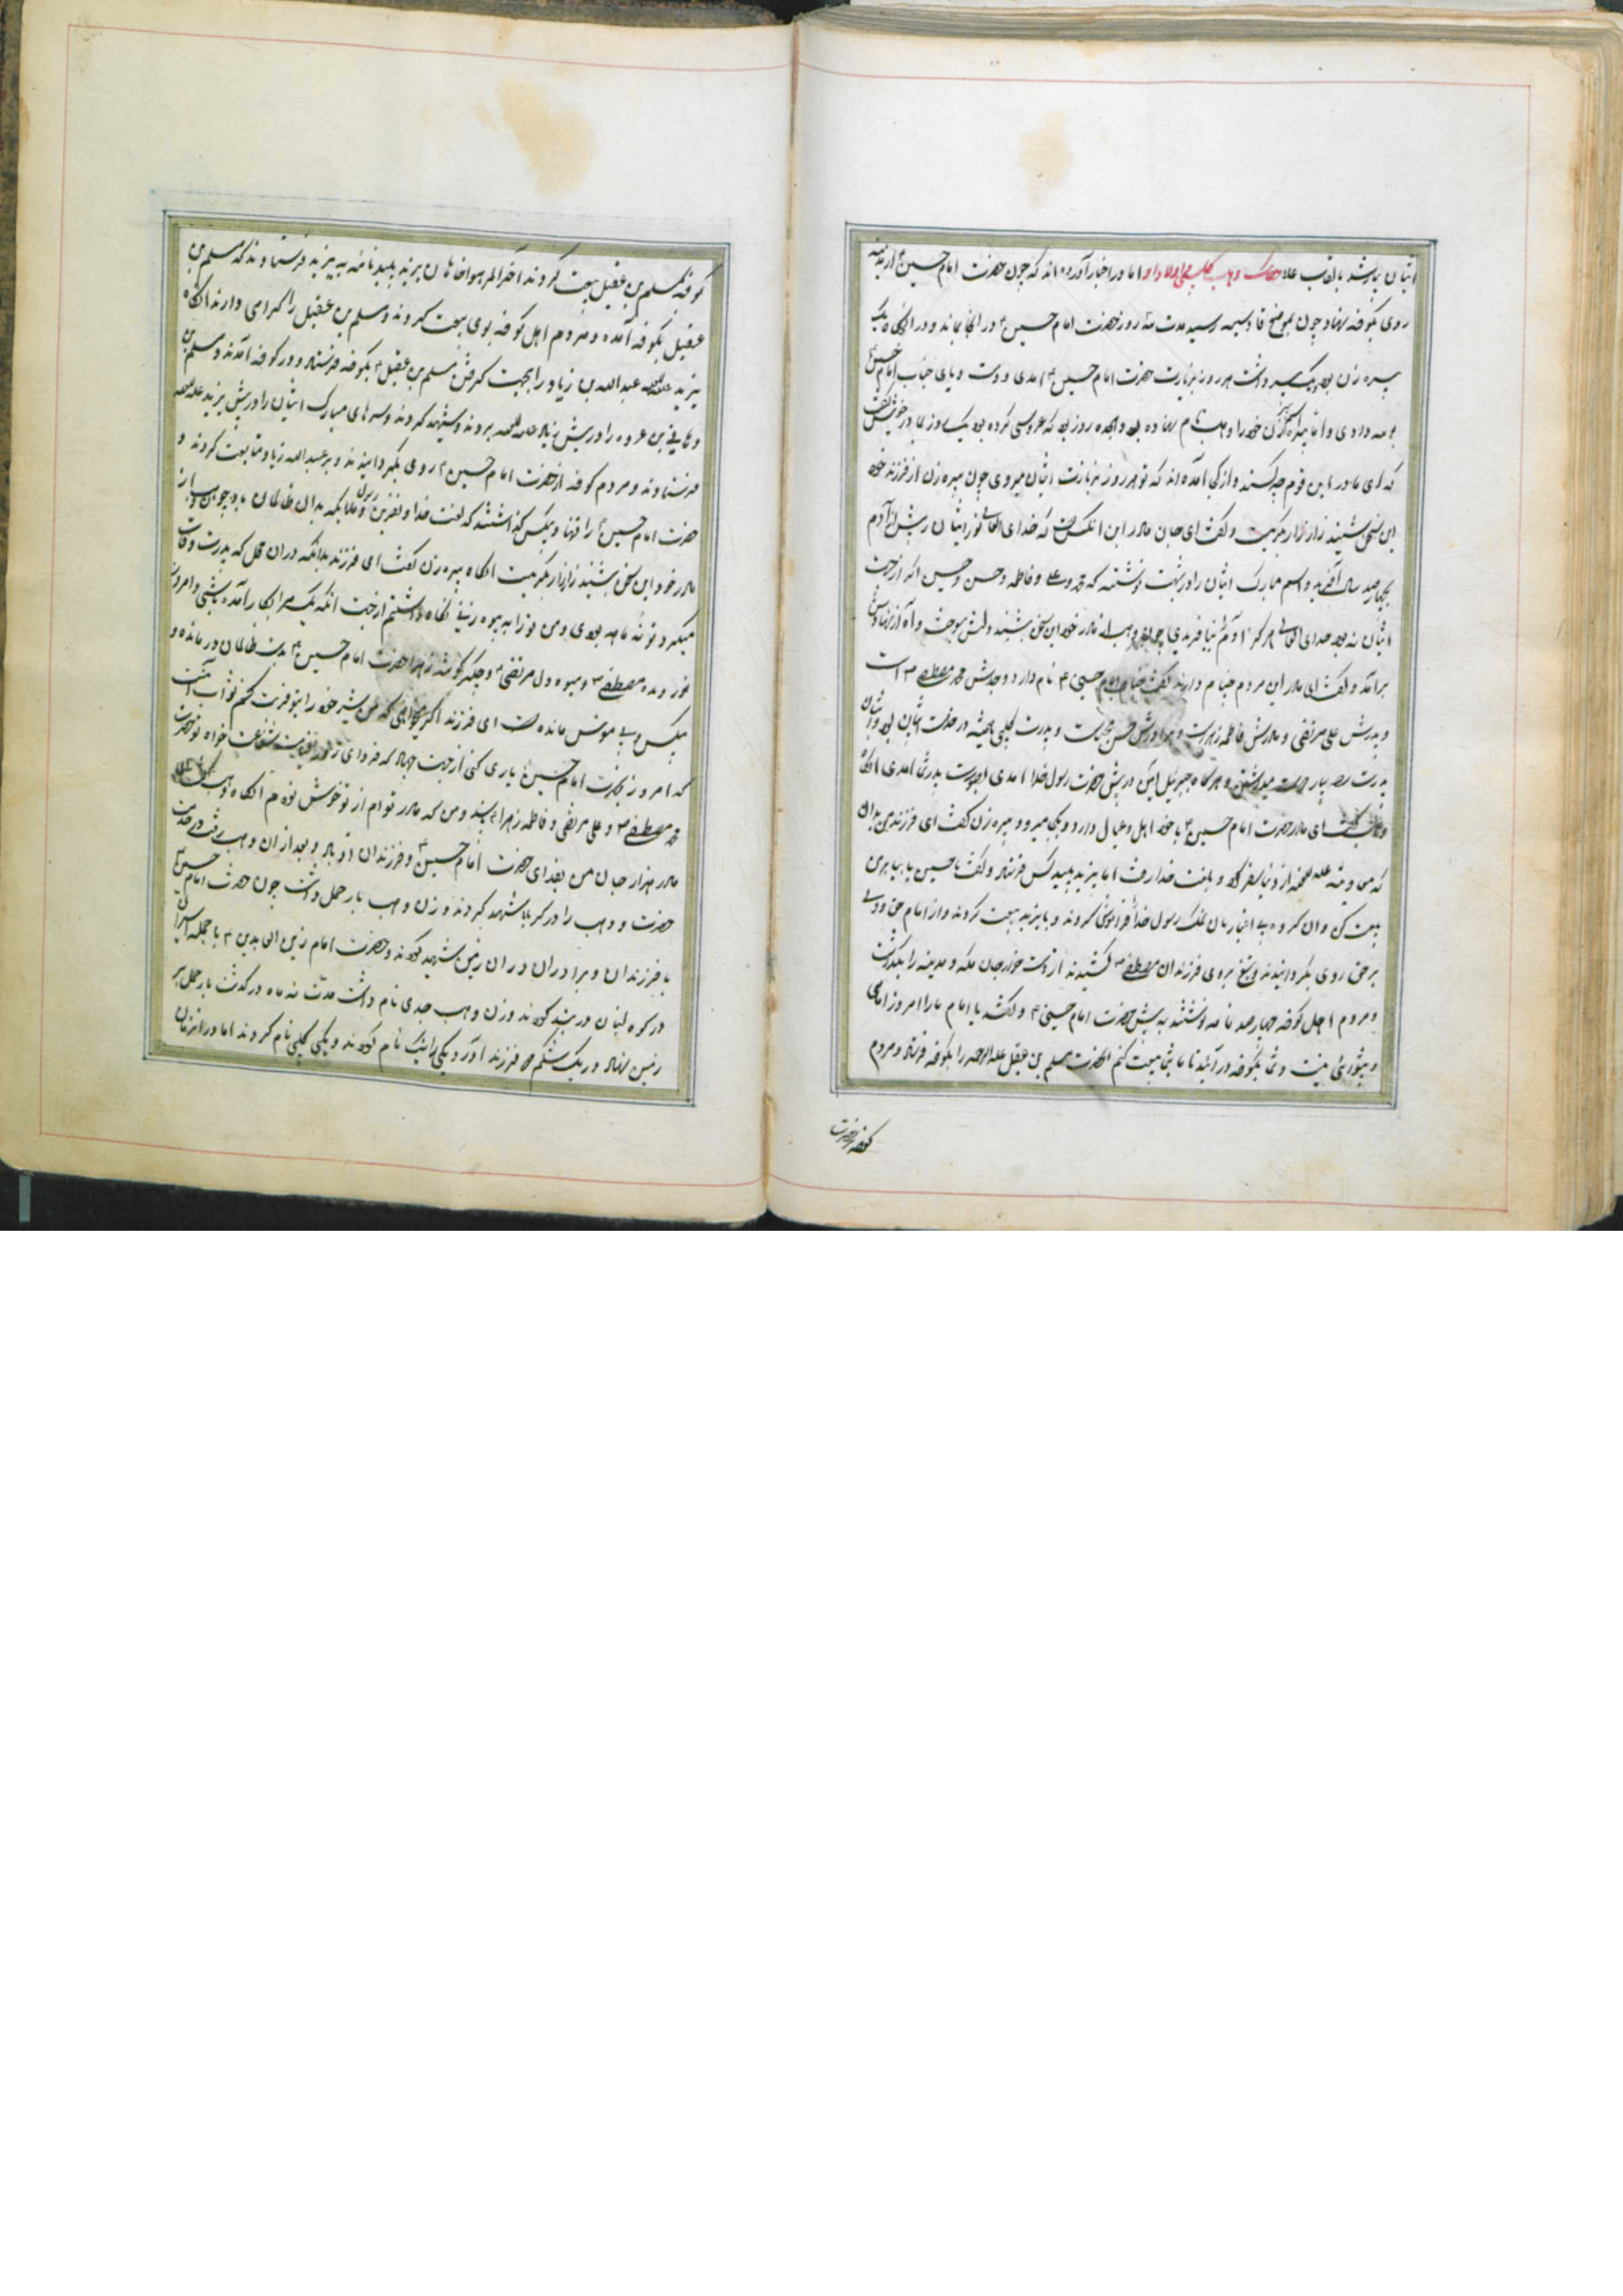 ایشان باشد بالقاب علا حکایت وهب کلبی اولاد او اما در اخبار آورده اند که چون حضرت امام حسین ۴ از مدینه
روی بکوفه نهاد چون بموضع قادسیه رسید مدت سه روز حضرت امام حسین ۴ در انجا بماند و در انجایگاه یک
پیره زن بود یک پسر داشت هر روز بزیارت حضرت امام حسین ۴ امدی و دست و پای جناب امام حسین
بوسه دادی و اما پیره زن خود را وهب نام نهاده بود و هجده روز بود که عروسی کرده بود یک روز با مادر خویش گفت
که ای مادر این قوم چه کسند و از کجا آمده اند که تو هر روز بزیارت ایشان میروی چون پیره زن از فرزند خود
این سخن بشنید زار زار بگریست و گفت ای جان مادر این انکس است که خدای تعالی نور ایشان را پیش از آدم
بچهارصد سال آفرید و اسم مبارک ایشان را در بهشت نوشته که محمد و علی و فاطمه و حسن و حسین اگر از جهت
ایشان نه بود خدای تعالی هرگز آدم را نیافریدی چون وهب از مادر خود این سخن بشنید دلش بسوخت و آه از نهادش
برآمد و گفت ای مادر این مردم چه نام دارند گفت جناب امام حسین ۴ نام دارد و جدش محمد مصطفی ص است
و پدرش علی مرتضی و مادرش فاطمه زهراست و برادرش حسن مجتبی است و پدرت کلبی همیشه در خدمت ایشان بود و ایشان
پدرت را بسیار دوست میداشتند و هرگاه جبرئیل امین در پیش حضرت رسول خدا امدی بصورت پدرت امدی انگاه
وهب گفت ای مادر حضرت امام حسین ۴ با خود اهل و عیال دارد و بکجا میرود پیره زن گفت ای فرزند من بدان
که معاویه علیه اللعنه از دنیا سفر کرد و بلعنت خدا رفت اما یزید پلید کس فرستاد و گفت یا حسین بیا با من
بیعت کن و ان کروه بی اختیار نان نمک رسول خدا فراموش کردند و با یزید بیعت کردند و از امام حق و ولی
برحق روی بگردانیدند و تیغ بروی فرزندان مصطفی ص کشیدند از دست خوارجان مکه و مدینه را بگذاشت
و مردم اهل کوفه چهارصد نامه نوشتند به پیش حضرت امام حسین ۴ و گفتند یا امام ما را امروز امامی
و پیشوائی نیست و شما بکوفه در آئید تا ما با شما بیعت کنیم انحضرت مسلم بن عقیل علیه الرحمه را بکوفه فرستاد و مردم
کوفه بحضرت
کوفه بمسلم بن عقیل بیعت کردند آخر الامر هواخاهان یزید پلید نامه به یزید فرستادند که مسلم بن
عقیل بکوفه آمده و مردم اهل کوفه بوی بیعت کردند و مسلم بن عقیل را گرامی دارند انگاه
یزید علیه اللعنه عبدالله بن زیاد را بجهت کرفتن مسلم بن عقیل ۴ بکوفه فرستاد و در کوفه آمدند و مسلم بن
و هانی بن عروه را در پیش زیاد علیه اللعنه بردند و شهید کردند و سرهای مبارک ایشان را در پیش یزید علیه اللعنه
فرستادند و مردم کوفه از حضرت امام حسین ۴ روی بگردانیدند و بر عبدالله زیاد متابعت کردند و
حضرت امام حسین ۴ را تنها و بیکس گذاشتند که لعنت خدا و نفرین رسول و ملایکه بدان ظالمان باد چون وهب از
مادر خود این سخن بشنید زار زار بگریست انگاه پیره زن گفت ای فرزند بدانکه در ان محل که پدرت وفات
میکرد تو نه ماهه بودی و من تو را به بیوه زنی نگاه داشتم از جهت انکه یک مرا بکار آمده باشی و امروز
نور دیده مصطفی ص و میوه دل مرتضی ۴ و جگر گوشه زهرا حضرت امام حسین ۴ بدست ظالمان در مانده و
بیکس و بی مونس مانده است ای فرزند اگر میخواهی که من شیر خود را بتو فرت کنم ثواب انست
که امروز بحضرت امام حسین ۴ یاری کنی از جهت جهاد که فردای روز قیامت شفاعت خواه تو حضرت
محمد مصطفی ص و علی مرتضی و فاطمه زهرا باشند و من که مادر توام از تو خوشنود شوم انگاه وهب گفت ای
مادر هزار جان من بفدای حضرت امام حسین ۴ و فرزندان او باد و بعد از ان وهب رفت در خدمت
حضرت و وهب را در کربلا شهید کردند و زن وهب بار حمل داشت چون حضرت امام حسین
با فرزندان و برادران در ان زمین شهید کردند و حضرت امام زین العابدین ۴ با جمله اسیران
در کوه لبنان در بند کردند و زن وهب جدی نام داشت مدت نه ماه درگذشت بار حمل بر
زمین نهاد و در یک شکم دو فرزند آورد یکی را لیث نام کردند و یکی کلبی نام کردند اما در انزمان